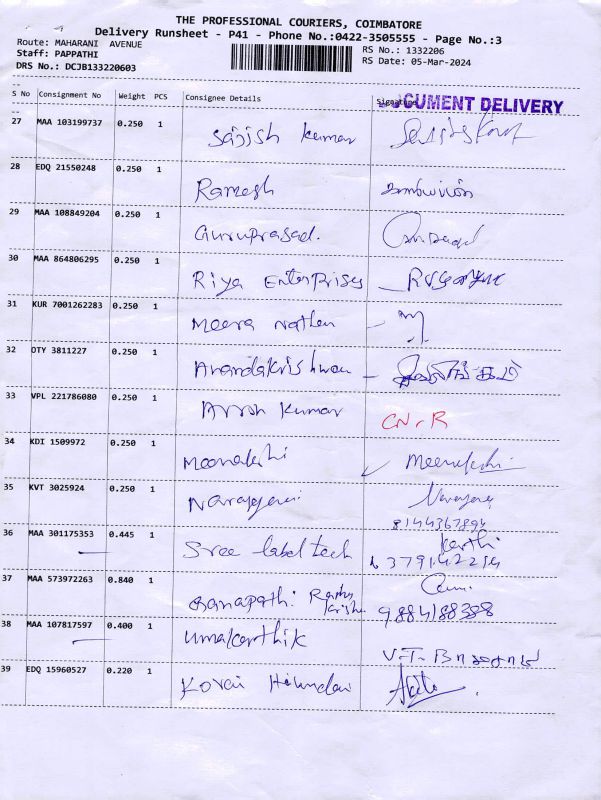 THE PROFESSIONAL COURIERS, COIMBATORE
Delivery Runsheet - P41 - Phone No.:0422-3505555 - Page No.:3
Route: MAHARANI AVENUE
RS No.: 1332206
Staff: PAPPATHI
RS Date: 05-Mar-2024
DRS No.: DCJB133220603
S No Consignment No Weight PCS Consignee Details Signature
CUMENT DELIVERY
27 MAA 103199737 0.250 1 Sajish Kumar
28 EDQ 21550248 0.250 1 Ramesh
29 MAA 108849204 0.250 1 Guruprasad.
30 MAA 864806295 0.250 1 Riya Enterprises
31 KUR 7001262283 0.250 1 Meera Nathen
32 OTY 3811227 0.250 1 Anandakrishnan
33 VPL 221786080 0.250 1 Arish Kumar CN-R
34 KDI 1509972 0.250 1 Meenakshi Meenakshi
35 KVT 3025924 0.250 1 Narayanan
8144367894
36 MAA 301175353 0.445 1 Sree label tech Karthi
6379142254
37 MAA 573972263 0.840 1 Ganapathi. 9884188388
38 MAA 107817597 0.400 1 Uma Karthik V.T.
39 EDQ 15960527 0.220 1 Kovai